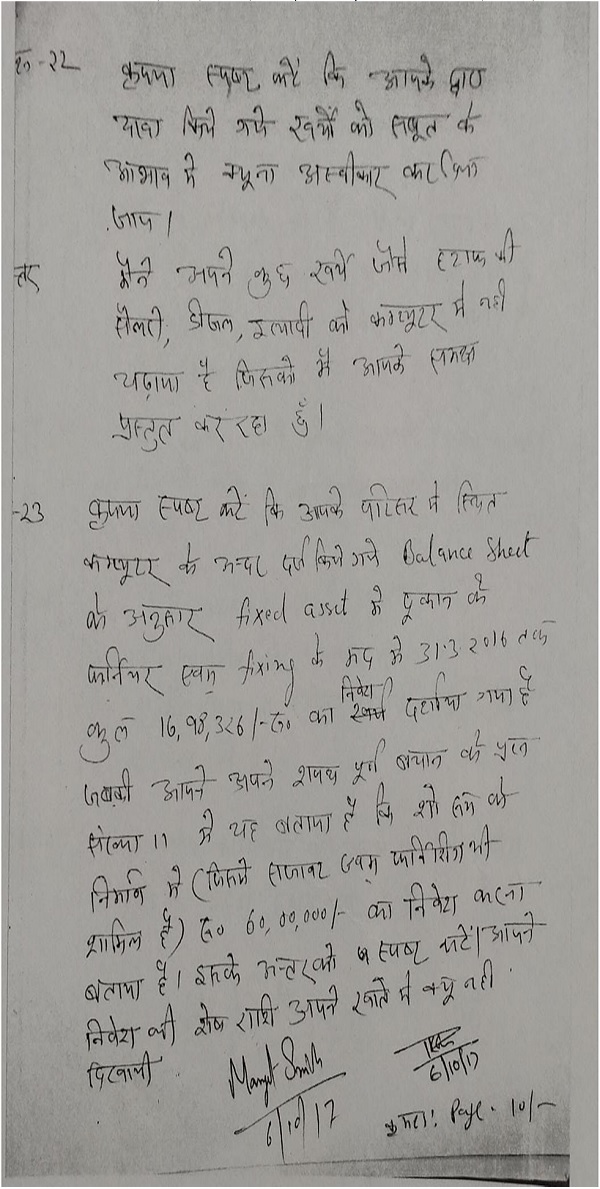 प्र०-22 कृपया स्पष्ट करें कि आपके द्वारा
दावा किये गये खर्चों को सबूत के
आभाव में क्यूं ना अस्वीकार कर दिया
जाय।
उत्तर मैंने अपने कुछ खर्चे जैसे स्टाफ की
सैलरी, डीजल, इत्यादी को कम्प्यूटर में नही
चढ़ाया है जिसको मैं आपके समक्ष
प्रस्तुत कर रहा हूँ।
-23 कृपया स्पष्ट करें कि आपके परिसर में स्थित
कम्प्यूटर के अन्दर दर्ज किये गये Balance Sheet
के अनुसार fixed asset में दूकान के
फर्निचर एवम् fixing के मद में 31.3.2016 तक
कुल 16,98,326/- रू० का निवेश दर्शाया गया है
जबकी आपने अपने शपथ पूर्ण बयान के प्रश्न
संख्या 11 में यह बताया है कि शो रूम के
निर्माण में (जिसमे सजावट एवम् फर्निशिंग भी
शामिल है) रू० 60,00,000/- का निवेश करना
बताया है। इसके अन्तर को स्पष्ट करें। आपने
निवेश की शेष राशि अपने खाते में क्यू नही
दिखायी
6/10/17
6/10/17
क्रमशः Page. 10/-